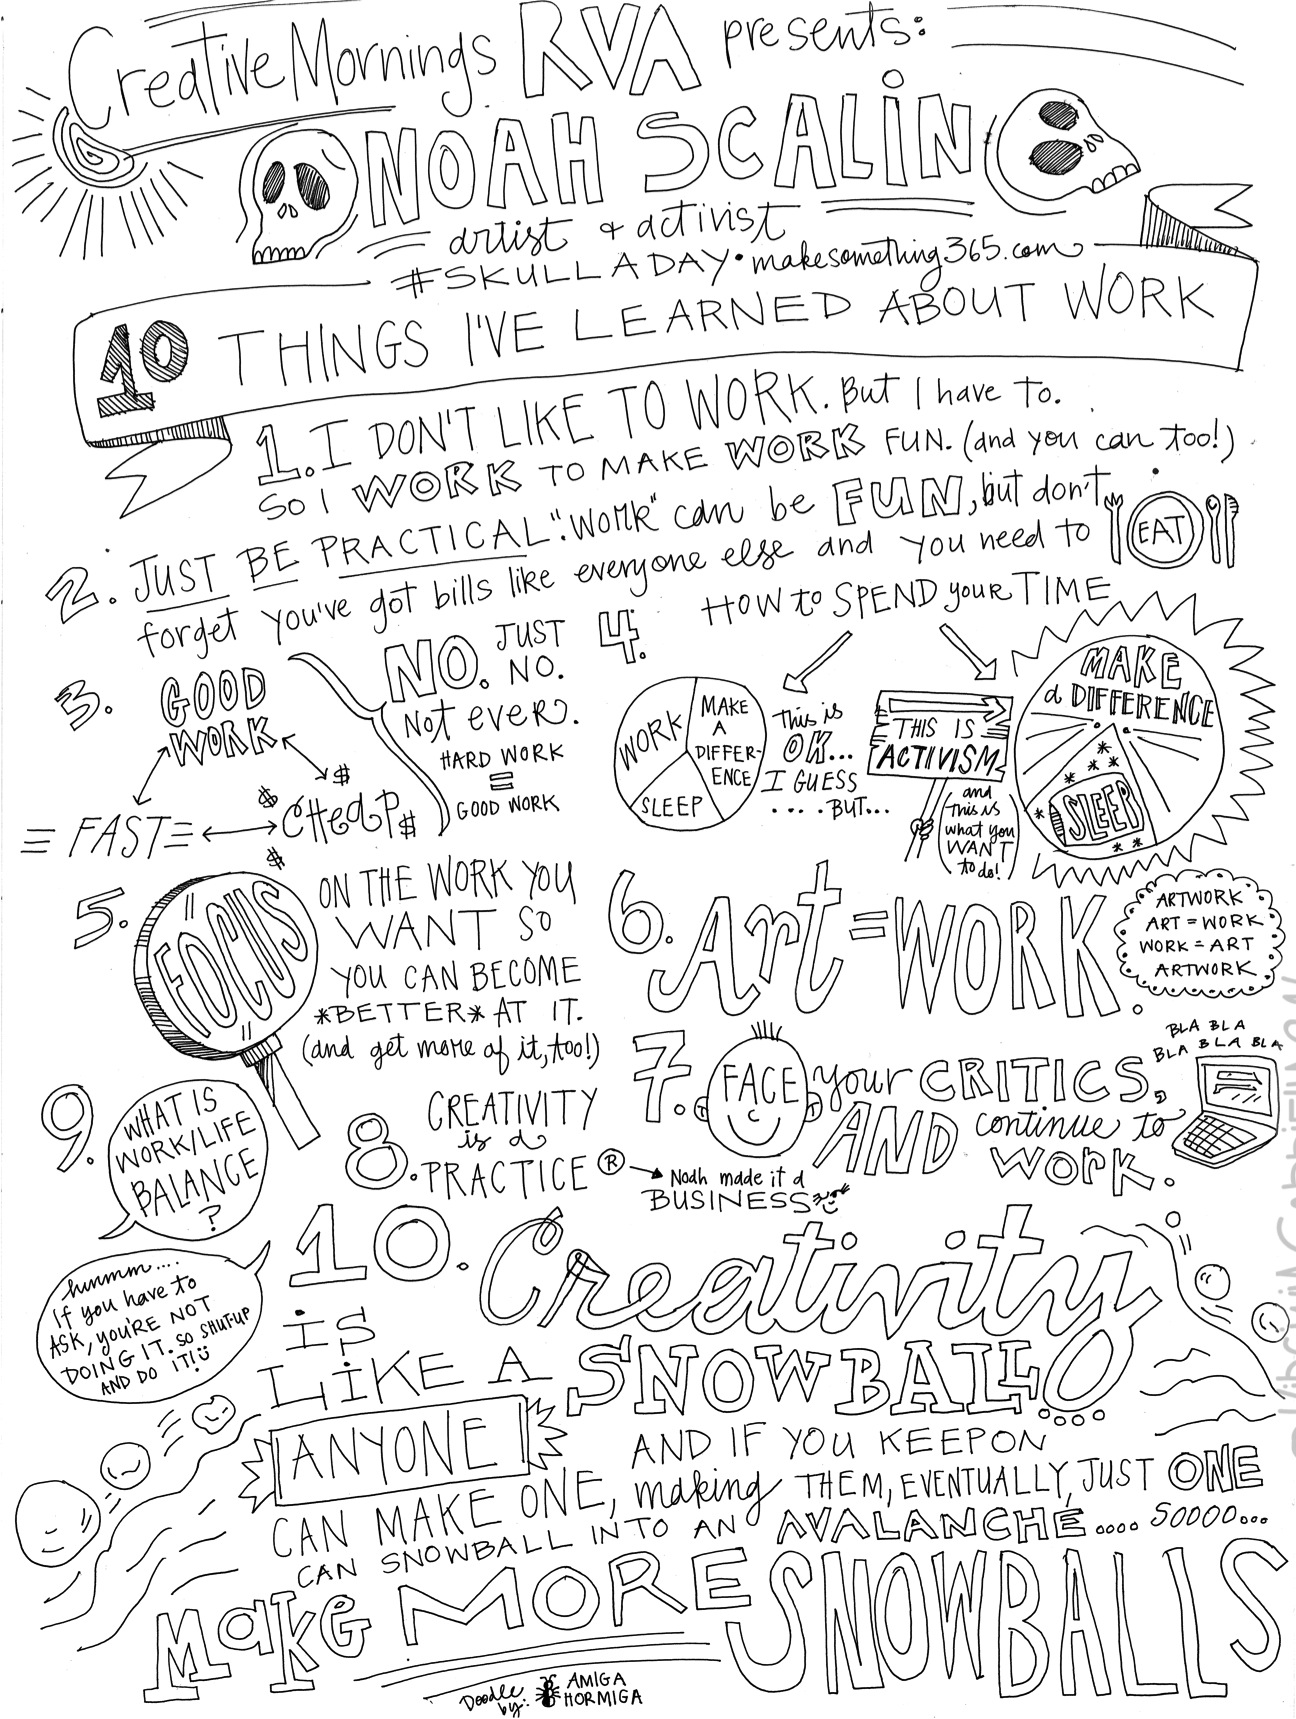 Creative Mornings RVA presents:
NOAH SCALIN
artist & activist
#SKULLADAY • makesomething365.com
10 THINGS I'VE LEARNED ABOUT WORK
1. I DON'T LIKE TO WORK. But I have to.
SO I WORK TO MAKE WORK FUN. (and you can too!)
2. JUST BE PRACTICAL: "WORK" can be FUN, but don't
forget you've got bills like everyone else and you need to EAT
3. GOOD
WORK
FAST
CHEAP
$
$
$
$
NO. JUST
NO.
Not ever.
HARD WORK
=
GOOD WORK
4. HOW to SPEND your TIME
WORK
MAKE
A
DIFFER-
ENCE
SLEEP
this is
OK...
I GUESS
.... BUT...
THIS IS
ACTIVISM
(and
this is
what you
WANT
to do!)
MAKE
a DIFFERENCE
SLEEP
5. FOCUS
ON THE WORK YOU
WANT SO
YOU CAN BECOME
*BETTER* AT IT.
(and get more of it, too!)
6. Art = WORK.
ARTWORK
ART = WORK
WORK = ART
ARTWORK
7. FACE your CRITICS,
AND continue to
work.
BLA BLA
BLA BLA BLA
8. CREATIVITY
is a
PRACTICE ®
Noah made it a
BUSINESS
9. WHAT IS
WORK/LIFE
BALANCE
?
hmmm....
If you have to
ASK, YOU'RE NOT
DOING IT. SO SHUT-UP
AND DO IT!
10. Creativity
is
LIKE A SNOWBALL
ANYONE
CAN MAKE ONE,
AND IF YOU KEEP ON
making THEM, EVENTUALLY, JUST ONE
CAN SNOWBALL INTO AN AVALANCHE.... SOOOO...
MAKE MORE SNOWBALLS
Doodle
by:
AMIGA
HORMIGA